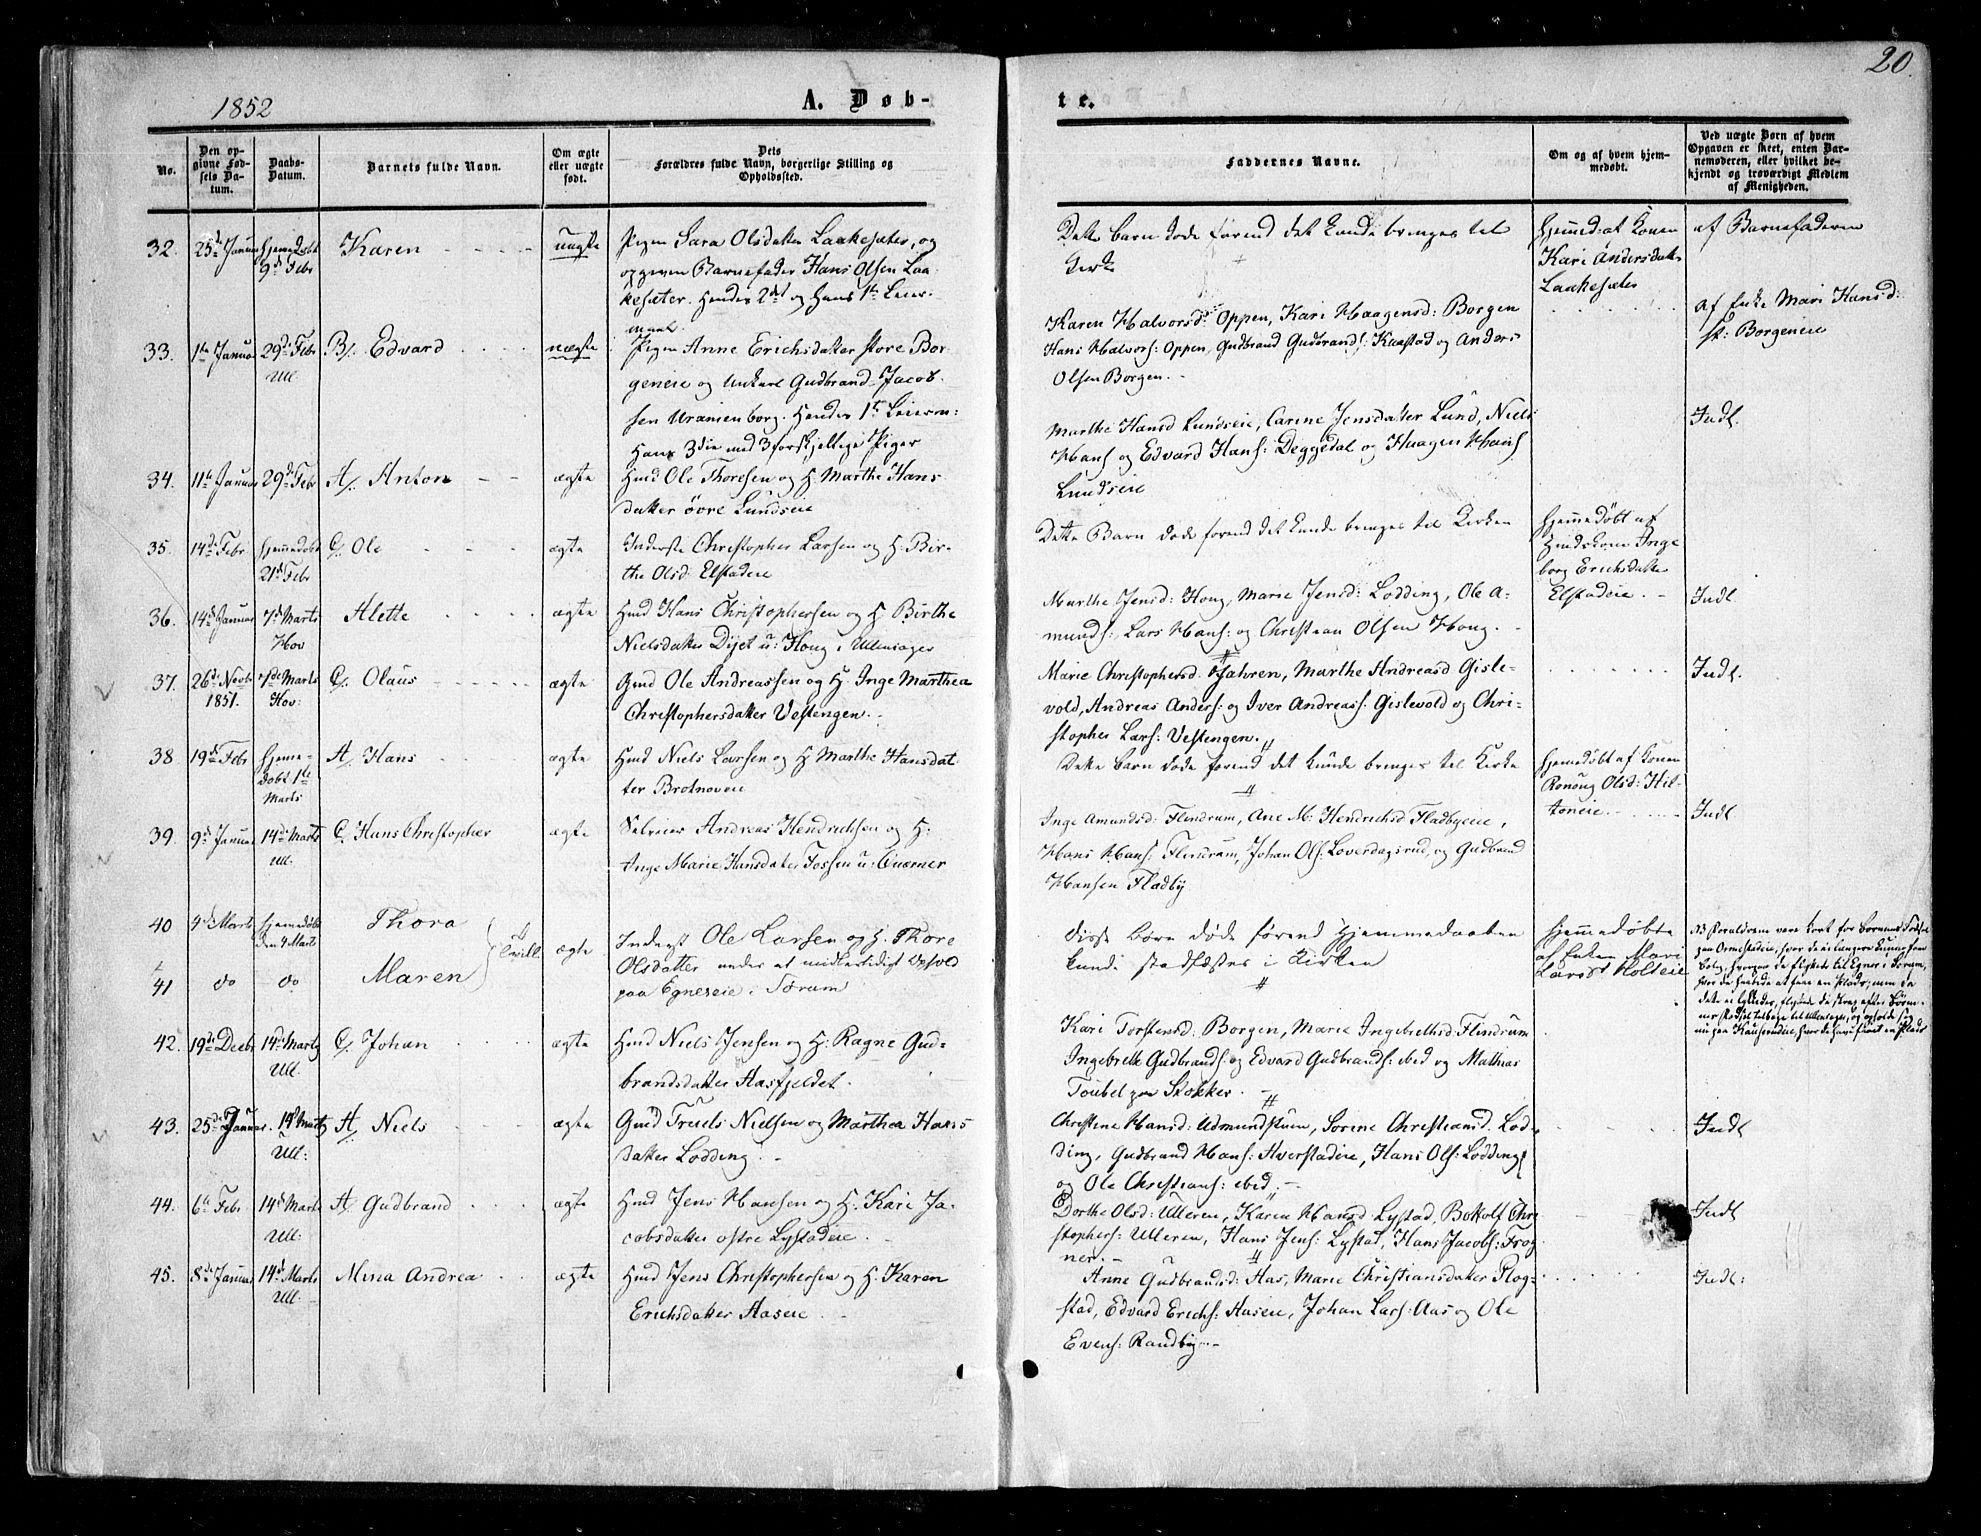 1852
A. Døb-
te.
20.
No.
Den op-
givne Fød-
sels Da-
tum.
Daabs-
Datum.
Barnets fulde Navn.
Om ægte
eller uægte
født.
Dets
Forældres fulde Navn, borgerlige Stilling og
Opholdssted.
Faddernes Navne.
Om og af hvem hjem-
medøbt.
Ved uægte Børn af hvem
Opgaven er skeet, enten Bar-
nemoderen, eller hvilket be-
kjendt og troværdigt Medlem
af Menigheden.
32. 25de Januar Hjemedøbt Karen uægte Pigen Sara Olsdatter Laakesæter, og
9de Febr opgiven Barnefader Hans Olsen Laa-
kesæter. Hendes 2det og Hans 1ste Leier-
maal.
Dette Barn døde førend det kunde bringes til
Kirke
Hjemmed: af Konen
Kari Andersdatter
Laakesæter
af Barnefaderen
33. 1ste Januar 29de Febr B/. Edvard uægte Pigen Anne Erichsdatter store Bor-
Ull. geneie og Unkarl Gudbrand Jacob-
sen Uranienborg. Hendes 1ste Leierm:
Hans 3die med 3 forskjellige Piger
Karen Halvorsd: Oppen, Kari Haagensd: Borgen
Hans Halvors: Oppen, Gudbrand Gudbrands: Knastad og Anders
Olsen Borgen.
af Enke Mari Hansd:
st: Borgeneie
34. 11te Januar 29de Febr A/. Anton ægte Hmd Ole Thoresen og H. Marthe Hans
datter øvre Lundseie
Marthe Hansd Lundseie, Carine Jensdatter Lund, Niels
Hans og Edvard Hans: Deggedal og Haagen Hans
Lundseie
Indl.
35. 14de Febr Hjemmedøbt C/. Ole ægte Inderste Christopher Larsen og H. Bir-
21de Febr the Olsd: Elstadeie
Dette Barn døde førend det kunde bringes til Kirken
Hjemmedøbt af
Huuskone Inge
borg Erichsdatter
Elstadeie.
36. 14de Januar 7de Marts Alette ægte Hmd Hans Christophersen og H. Birthe
Hov Nielsdatter Dyet u: Houg i Ullensager
Marthe Jensd: Houg, Marie Jensd: Lodding, Ole A-
munds: Lars Hans: og Christian Olsen Houg.
Indl
37. 26de Novbr 7de Marts C/. Olaus ægte Gmd Ole Andreassen og H. Inge Marthea
1851. Hov: Christophersdatter Vestengen.
Marie Christophersd. Jahren, Marthe Andreasd Gisle-
vold, Andreas Anders: og Iver Andreass: Gislevold og Chri-
stopher Lars: Vestengen.
Indl.
38 19de Febr Hjeme- A/. Hans ægte Hmd Niels Larsen og H Marthe Hansdat
døbt 1ste ter Brotnoveie
Marts
Dette Barn døde førend det kunde bringes til Kirke
Hjemmedøbt af Konen
Rønoug Olsd: Hil-
toneie.
39. 9de Januar 14de Marts C. Hans Christopher ægte Selveier Andreas Hendrichsen og H:
Ull. Inge Marie Hansdatter Fossen u: Quærner
Inge Amundsd: Flindrum, Ane M: Hendrichsd Fladbyeie,
Hans Hans: Flindrum, Johan Ols: Løverdagsrud, og Gudbrand
Hansen Fladby
Indl
40 4de Marts Hjemedøbt Thora
den 4 Marts
41 do do Maren
Tvill. ægte Inderst Ole Larsen og H. Thore
Olsdatter under et midlertidigt Ophold
paa Egneseie i Sørum
Disse Børn døde førend Hjemmedaaben
kunde stadfæstes i Kirken
Hjemmedøbte
af Enken Mari
Larsd Holteie
42. 19de Decbr 14de Marts C/. Johan ægte Hmd Niels Jensen og H: Ragne Gud-
Ull. brandsdatter Aasfjeldet.
Kari Torstensd: Borgen, Marie Ingebrethsd: Flindrum
Ingebreth Gudbrands: og Edvard Gudbrands: ibid og Mathias
Toubel paa Stokker.
43. 25de Januar. 14de Marts A/. Niels ægte Gmd Truels Nielsen og Marthea Hans-
Ull: datter Lodding.
Christine Hansd: Udmundstuen, Sørine Christiansd. Lod-
ding, Gudbrand Hans: Averstadeie, Hans Ols: Lodding
og Ole Christians: ibid.
Indl
44. 6te Febr 14de Marts A/. Gudbrand ægte Hmd Jens Hansen og H. Kari Ja-
Ull: cobsdatter østre Lystadeie.
Dorthe Olsd: Ulleren, Karen Hansd Lystad, Bottolf Chri
stophers: Ulleren, Hans Jens: Lystad, Hans Jacobs: Frog
ner.
Indl
45. 8de Januar 14de Marts Mina Andrea ægte Hmd Jens Christophersen og H. Karen
Ull. Erichsdatter Aaseie
Anne Gudbrandsd: Aas, Marie Christiansdatter Plog-
stad, Edvard Erichs: Aaseie, Johan Lars: Aas og Ole
Evens: Randby
Indl: